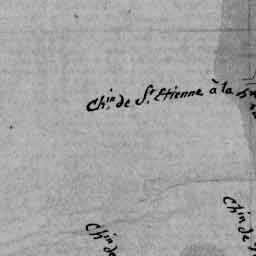 Ch.in de St. Etienne à la
Ch.in de
Ch.in de